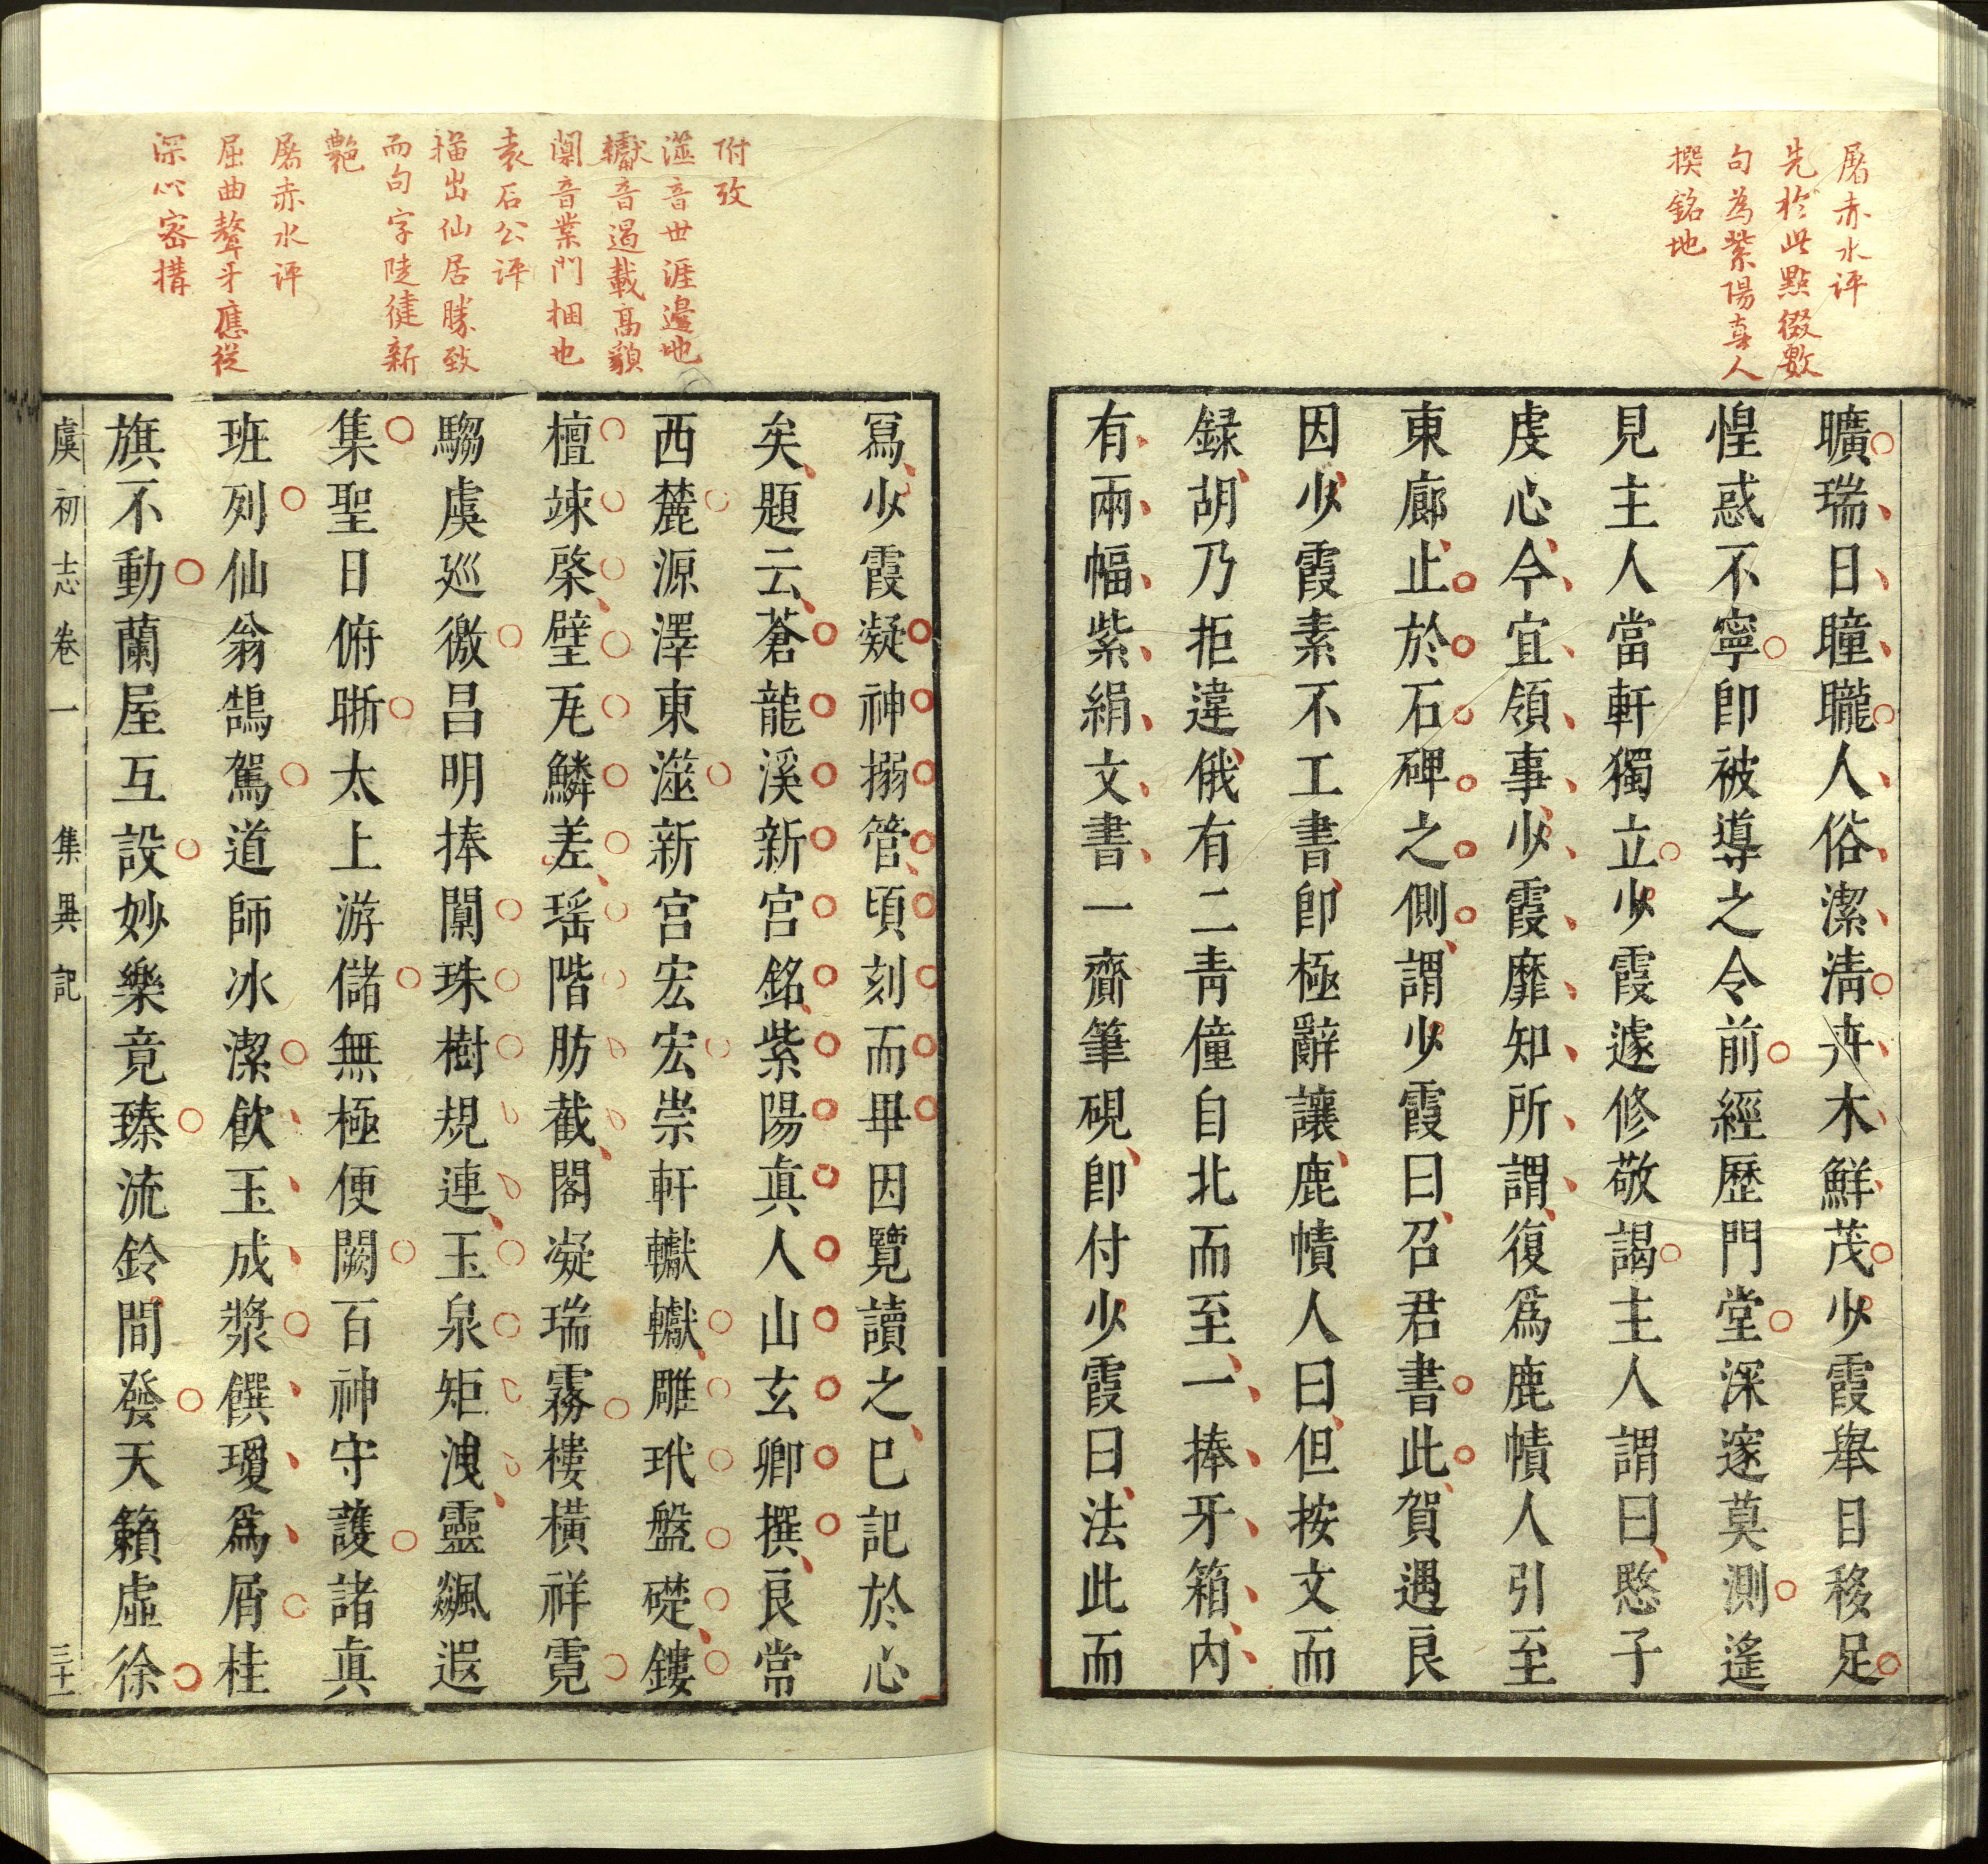 屠赤水评
先於此點綴數
句為紫陽真人
撰銘地
曠瑞日瞳矓人俗潔淸卉木鮮茂少霞舉目移足
惶惑不寧卽被導之令前經歷門堂深邃莫測遙
見主人當軒獨立少霞遽修敬謁主人謂曰愍子
虔心今宜領事少霞靡知所謂復爲鹿幘人引至
東廊止於石碑之側謂少霞曰召君書此賀遇良
因少霞素不工書卽極辭讓鹿幘人曰但按文而
録胡乃拒違俄有二靑僮自北而至一捧牙箱內
有兩幅紫絹文書一齎筆硯卽付少霞曰法此而
附攷
澨音世涯邉地
轞音遏載高貌
闑音業門梱也
袁石公评
描出仙居勝致
而句字陡健新
艷
屠赤水评
屈曲聱牙應從
深心密搆
冩少霞凝神搦管頃刻而畢因覽讀之已記於心
矣題云蒼龍溪新宮銘紫陽眞人山玄卿撰良常
西麓源澤東澨新宮宏宏崇軒轞轞雕玳盤礎鏤
檀竦棨壁瓦鱗差瑶階肪截閣凝瑞霧樓橫祥霓
騶虞廵徼昌明捧闑珠樹規連玉泉矩洩靈飈遐
集聖日俯晣太上游儲無極便闕百神守護諸眞
班列仙翁鵠駕道師冰潔飮玉成漿饌瓊爲屑桂
旗不動蘭屋互設妙樂竟臻流鈴間發天籟虛徐
虞初志卷一 集異記 三十一